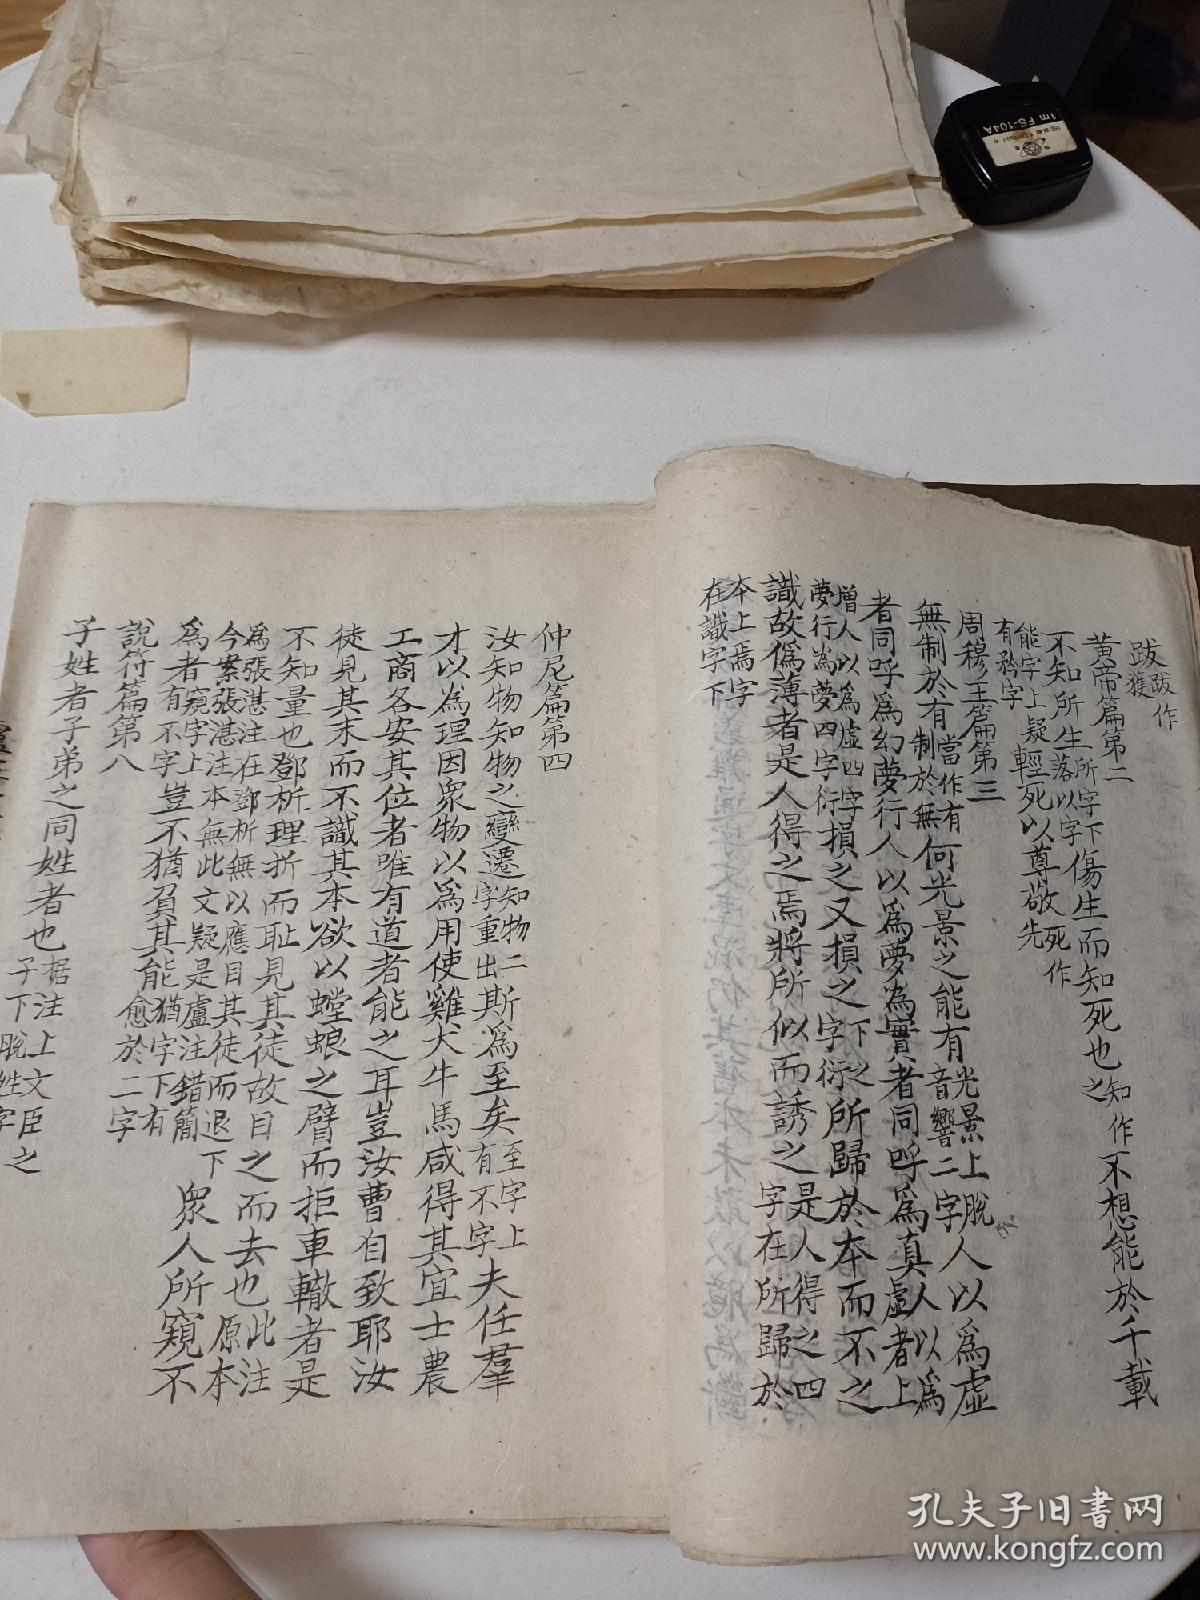 跋跋作
獲
黄帝篇第二
不知所生所字下落以字傷生而知死也知作之不想能於千載
能字上疑有矜字輕死以尊敬先死作
周穆王篇第三
無制於有制於無當作有何光景之能有光景上脫音響二字人以為虛
者同呼為幻夢行人以為夢為實者同呼為真虛者上
增人以為虛四字夢行為夢四字衍損之又損之下之字衍所歸於本而不之
識故偽薄者是人得之焉將所似而誘之是人得之四字在所歸於
本上焉字在識字下
仲尼篇第四
汝知物知物之變遷知物二字重出斯為至矣至字上有不字夫任羣
才以為理因眾物以為用使雞犬牛馬咸得其宜士農
工商各安其位者唯有道者能之耳豈汝曹自致耶汝
徒見其末而不識其本欲以螳蜋之臂而拒車轍者是
不知量也鄧析理折而恥見其徒故目之而去也此注原本
為張湛注在鄧析無以應目其徒而退下
今案張湛注本無此文疑是盧注錯簡眾人所窺不
為者窺字上有不字豈不猶負其能猶字下有愈於二字
說符篇第八
子姓者子弟之同姓者也据注上文臣之子下脫姓字
孔夫子旧书网
www.kongfz.com
1m FS-104A